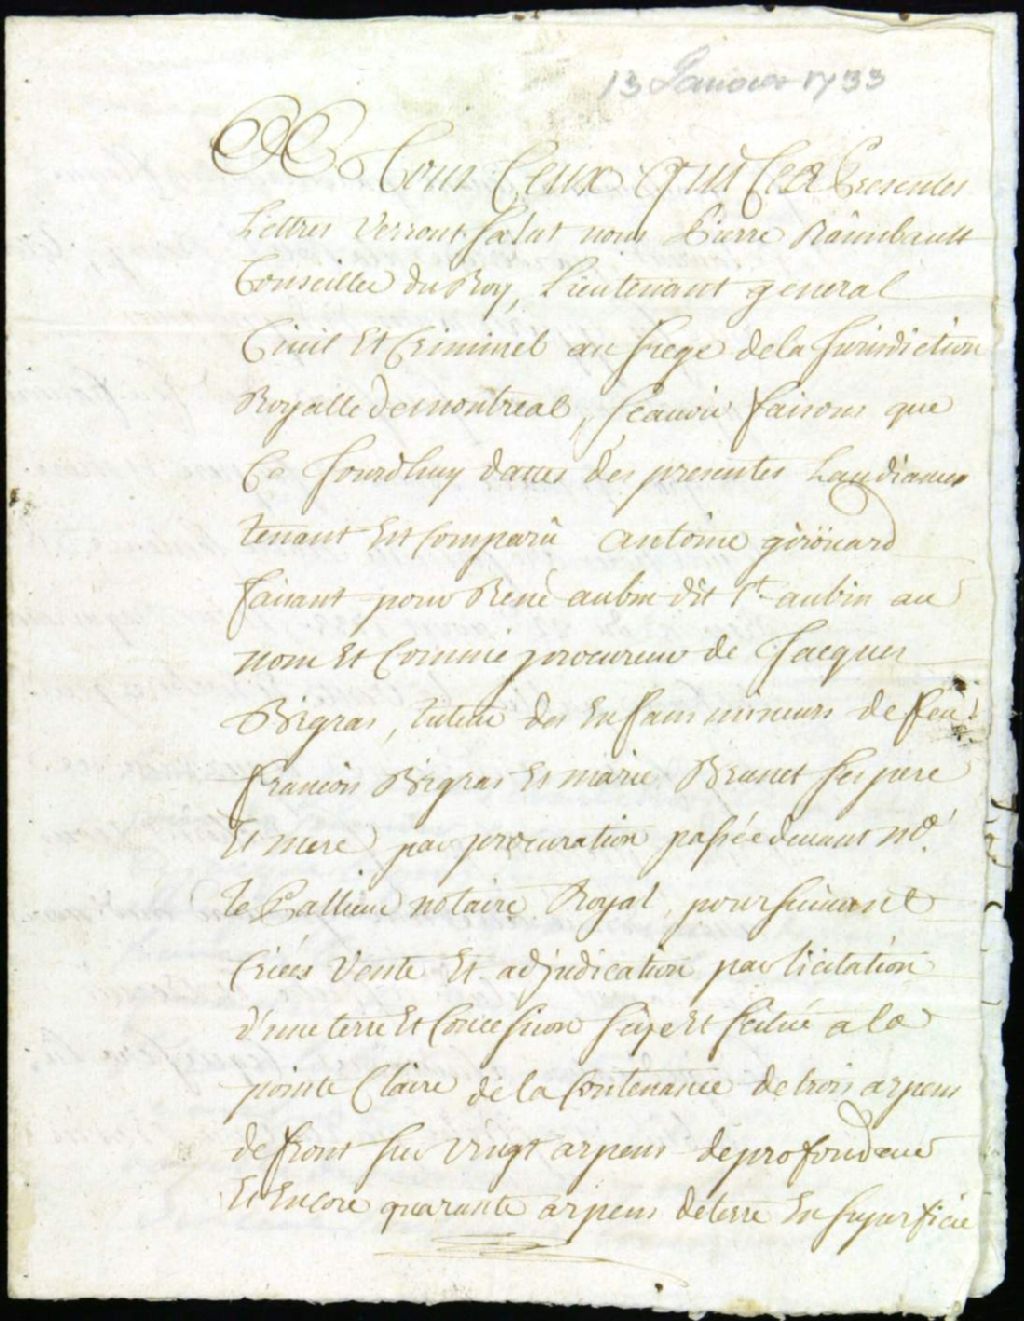 13 Janvier 1733
A Tous Ceux qui Ces Presentes
Lettres Verront Salut nous Pierre Raimbault
Conseiller du Roy, Lieutenant general
Civil Et Criminel au siege de la Jurisdiction
Royalle de montreal, scavoir faisons que
Ce Jourdhuy dattes des presentes Laudiance
tenant Est Comparu antoine giroüard
faisant pour René aubin dit St aubin au
nom Et Comme procureur de Jacques
Bigras, tuteur des Enfans mineurs de feu
francois Bigras Et marie Brunet ses pere
Et mere par procuration passée devant Me
le Pallieur notaire Royal, poursuivant
Criées Vente Et adjudication par licitation
d'une terre Et Concession size Et scitué a la
pointe Claire de la Contenance de trois arpens
de front sur vingt arpens de profondeur
Et Encore quarante arpens de terre En superficie